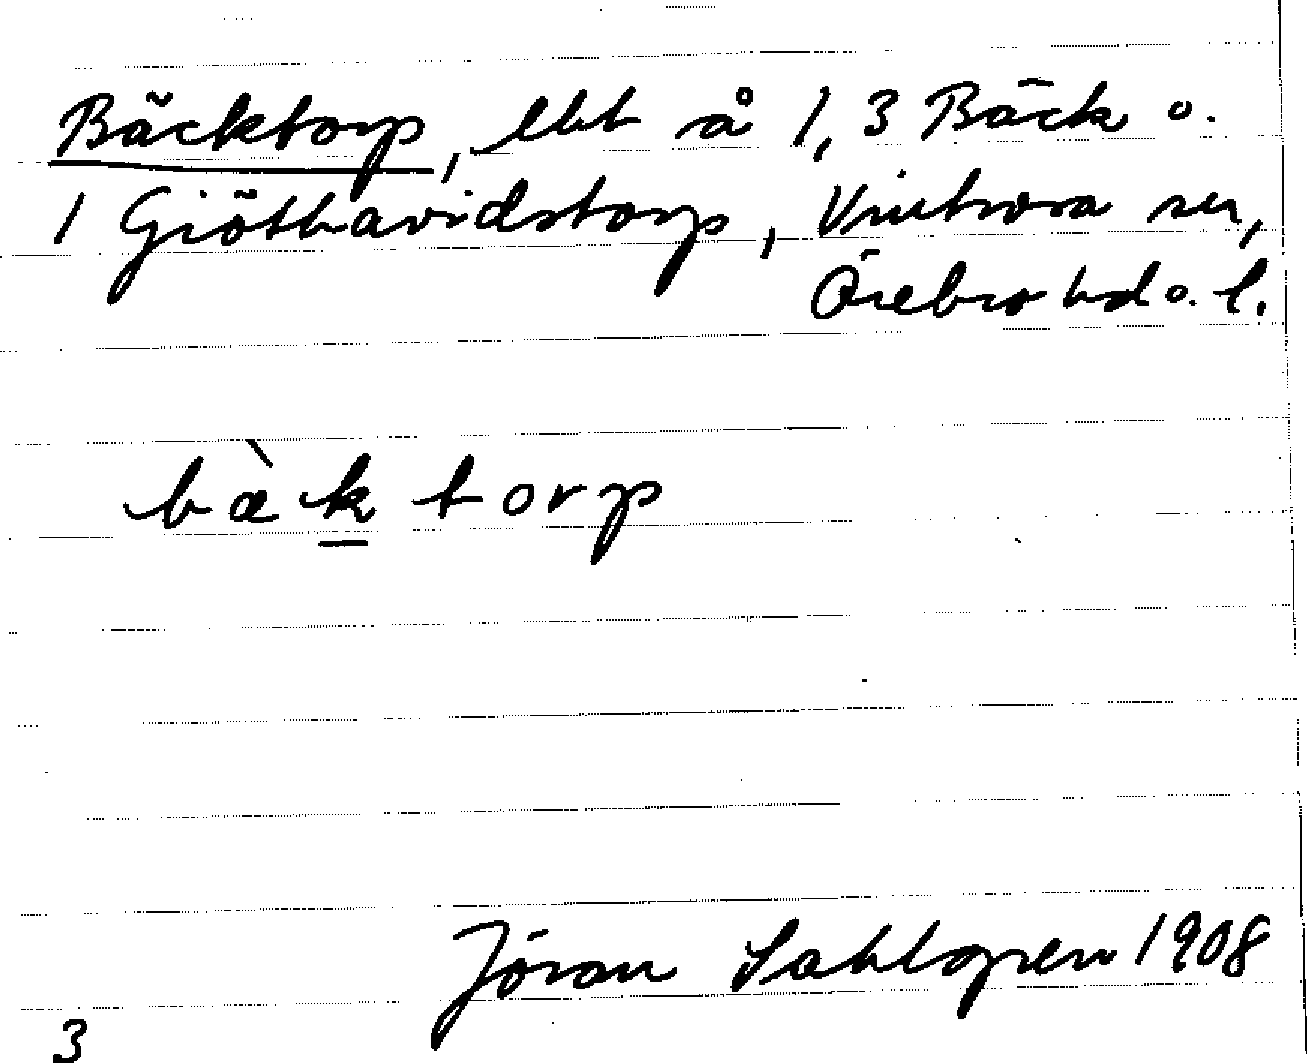 Bäcktorp, lht å 1, 3 Bäck o.
1 Giöthavidstorp, Vintrosa sn,
Örebro hd o. l.
bæ̀k torp
Jöran Sahlgren 1908
3